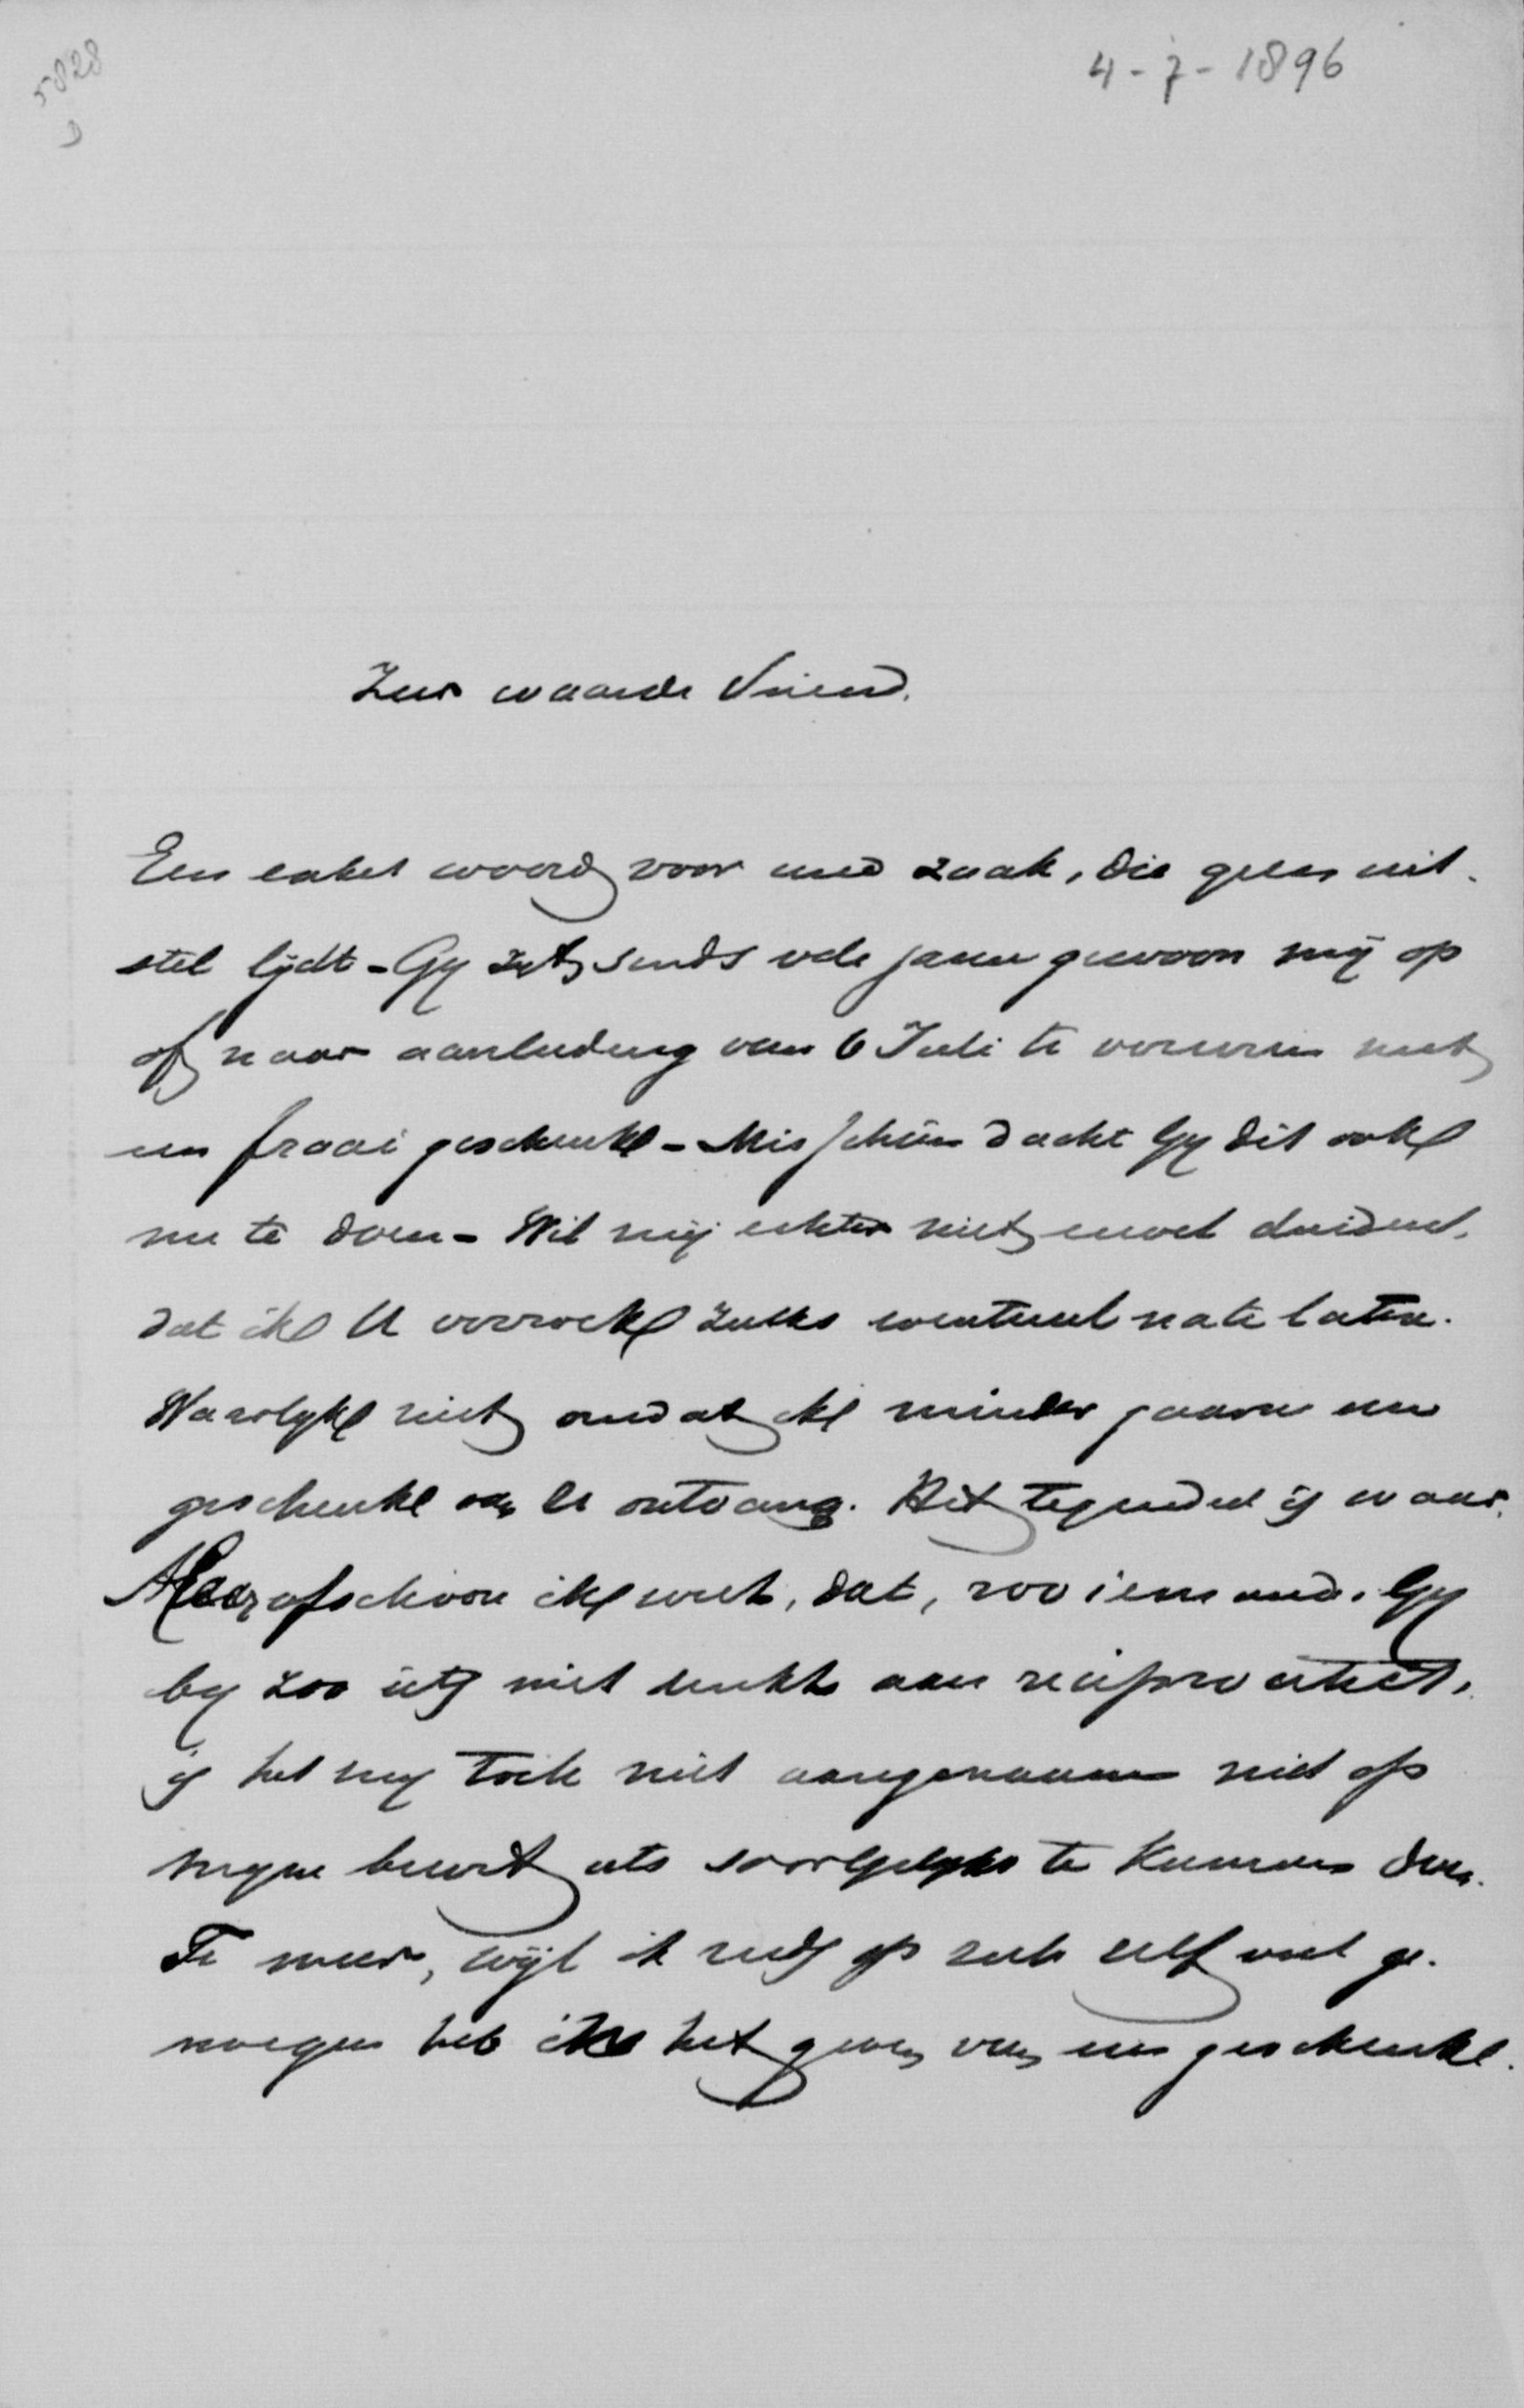 5828
4-7-1896
Zeer waarde Vriend.
Een enkel woord voor eene zaak, die geen uit-
stel lijdt - Gij zijt sinds vele jaren gewoon mij op
of naar aanleiding van 6 Juli te vereeren met
een fraai geschenk - Misschien dacht Gij dit ook
nu te doen - Wil mij echter niet euvel duiden,
dat ik U verzoek zulks eventueel na te laten.
Waarlijk niet omdat ik minder gaarne een
geschenk van U ontvang. Het tegendeel is waar.
Maar ofschoon ik weet, dat, zoo iemand, Gij
bij zoo iets niet denkt aan reciprociteit,
is het mij toch niet aangenaam niet op
mijne beurt iets soortgelijks te kunnen doen.
Te meer, wijl ik reeds op zich zelf veel ge-
noegen heb in het geven van een geschenk.